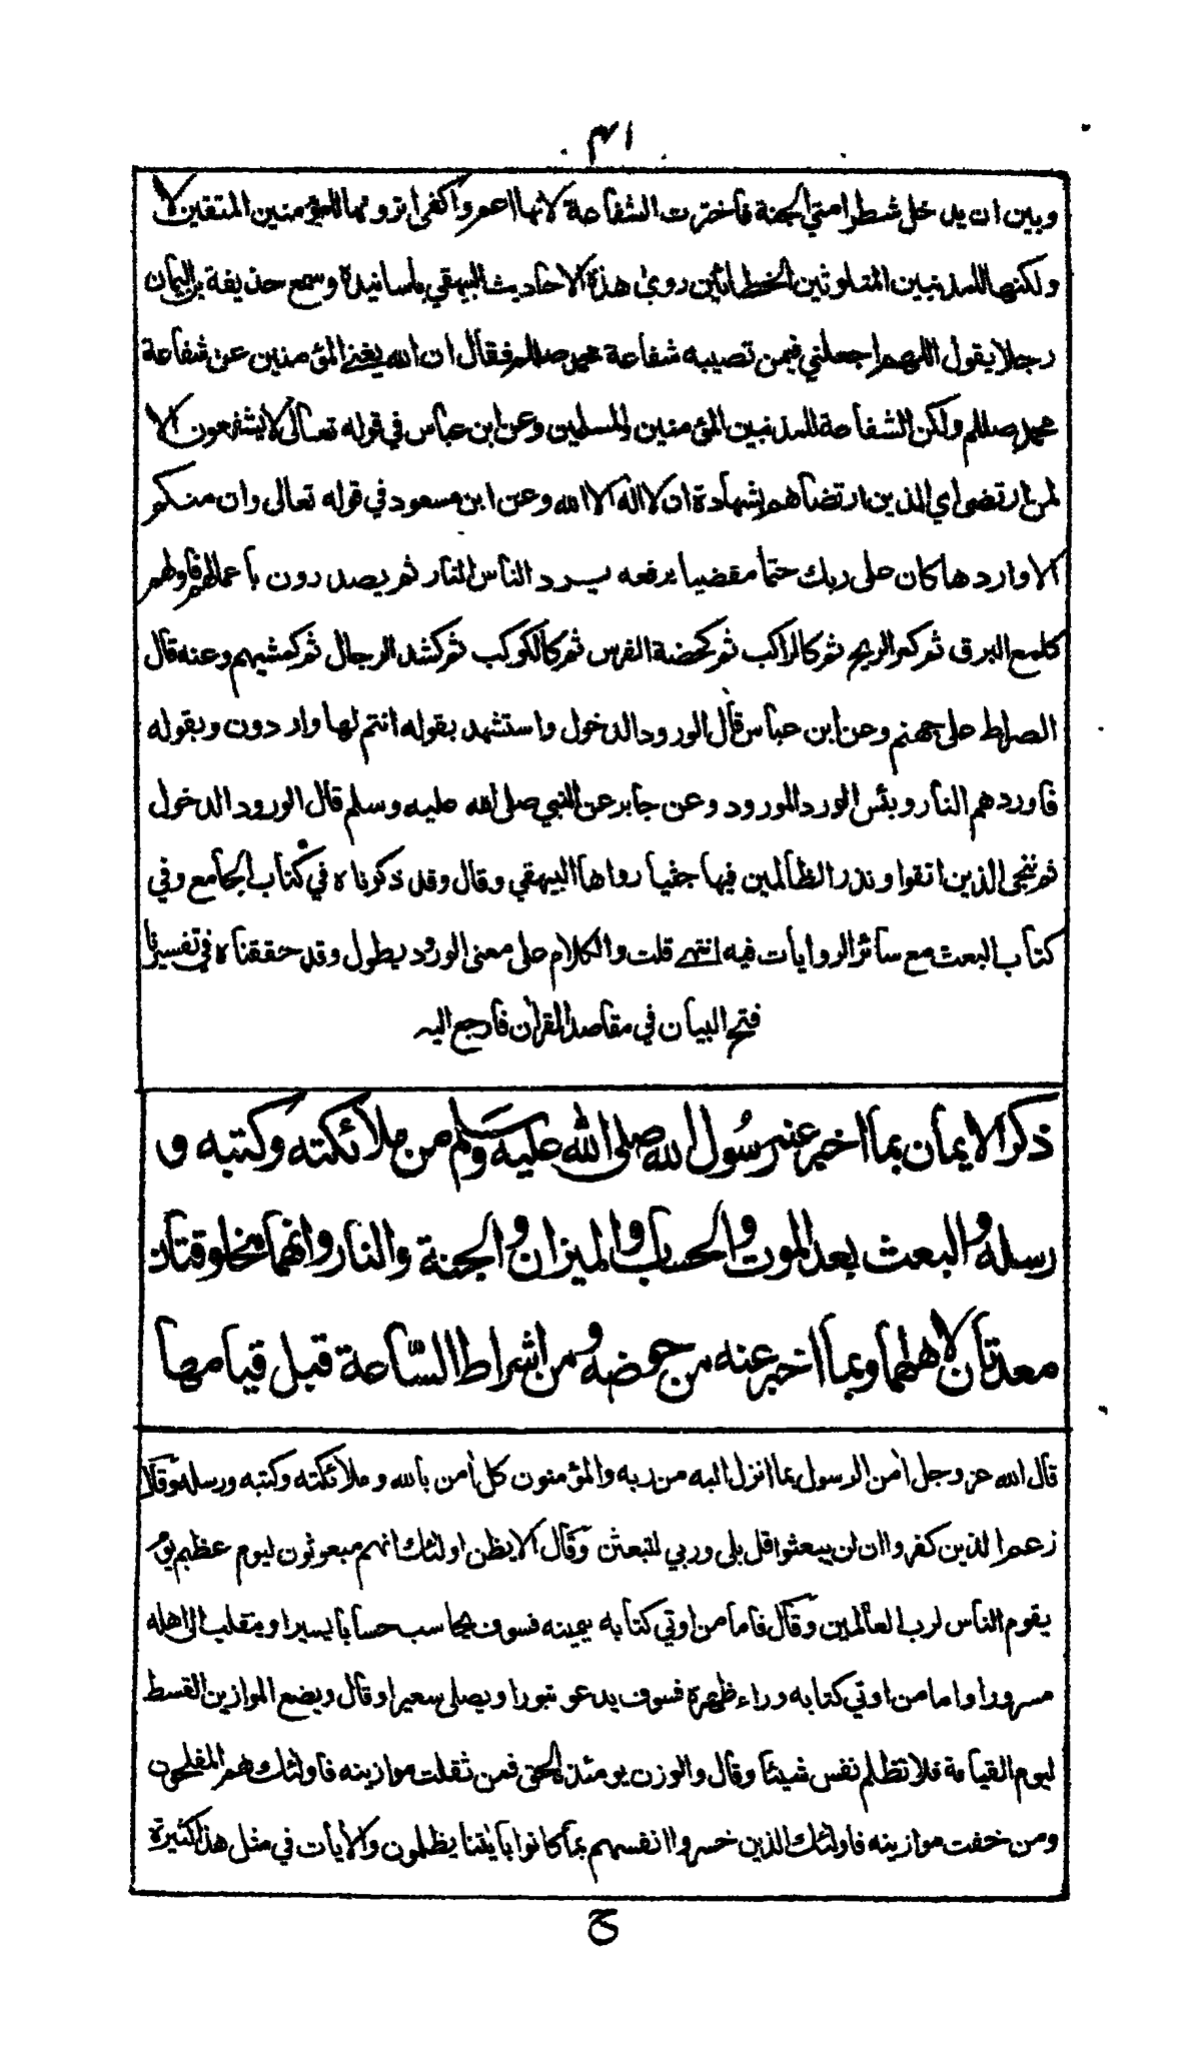 ٣١
وبين ان يدخل شطر امتي الجنة فاخترت الشفاعة لانها اعم واكفى اترونها للمؤمنين المتقين لا
ولكنها للمذنبين المتلوثين الخطائين روى هذة الاحاديث البيهقي باسانيدة وسمع حذيفة بن اليمان
رجلا يقول اللهم اجعلني فيمن تصيبه شفاعة محمد صللم فقال ان الله يغني المؤمنين عن شفاعة
محمد صللم ولكن الشفاعة للمذنبين المؤمنين والمسلمين وعن ابن عباس في قوله تعالى لا يشفعون الا
لمن ارتضى اي الذين ارتضاهم بشهادة ان لا اله الا الله وعن ابن مسعود في قوله تعالى وان منكم
الا واردها كان على ربك حتما مقضيا يرفعه يرد الناس النار ثم يصدرون باعمالهم فاولهم
كلمع البرق ثم كمر الريح ثم كالراكب ثم كحضة الفرس ثم كالكوكب ثم كشد الرجال ثم كمشيهم وعنه قال
الصراط على جهنم وعن ابن عباس قال الورود الدخول واستشهد بقوله انتم لها واردون وبقوله
فاوردهم النار وبئس الورد المورود وعن جابر عن النبي صلى الله عليه وسلم قال الورود الدخول
ثم ننجى الذين اتقوا ونذر الظالمين فيها جثيا رواها البيهقي وقال وقد ذكرناه في كتاب الجامع وفي
كتاب البعث مع سائر الروايات فيه انتهى قلت والكلام على معنى الورود يطول وقد حققناه في تفسيرنا
فتح البيان في مقاصد القرأن فارجع اليه
ذكر الايمان بما اخبر عنه رسول الله صلى الله عليه وسلم من ملائكته وكتبه و
رسله والبعث بعد الموت والحساب والميزان والجنة والنار وانهما مخلوقتان
معدتان لاهلهما وبما اخبر عنه من حوضه ومن اشراط الساعة قبل قيامها
قال الله عز وجل أمن الرسول بما انزل اليه من ربه والمؤمنون كل أمن بالله وملائكته وكتبه ورسله وقال
زعم الذين كفروا ان لن يبعثوا قل بلى وربي لتبعثن وقال الا يظن اولئك انهم مبعوثون ليوم عظيم يوم
يقوم الناس لرب العالمين وقال فاما من اوتي كتابه بيمينه فسوف يحاسب حسابا يسيرا وينقلب الى اهله
مسرورا واما من اوتي كتابه وراء ظهرة فسوف يدعو ثبورا ويصلى سعيرا وقال ويضع الموازين القسط
ليوم القيامة فلا تظلم نفس شيئا وقال والوزن يومئذ الحق فمن ثقلت موازينه فاولئك هم المفلحون
ومن خفت موازينه فاولئك الذين خسروا انفسهم بما كانوا بايٰتنا يظلمون والأيات في مثل هذا كثيرة
ح